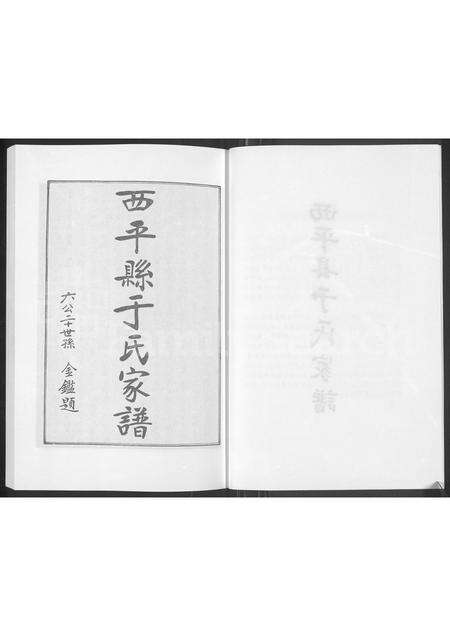 西平縣于氏家譜
六公二十世孫 金鑑題